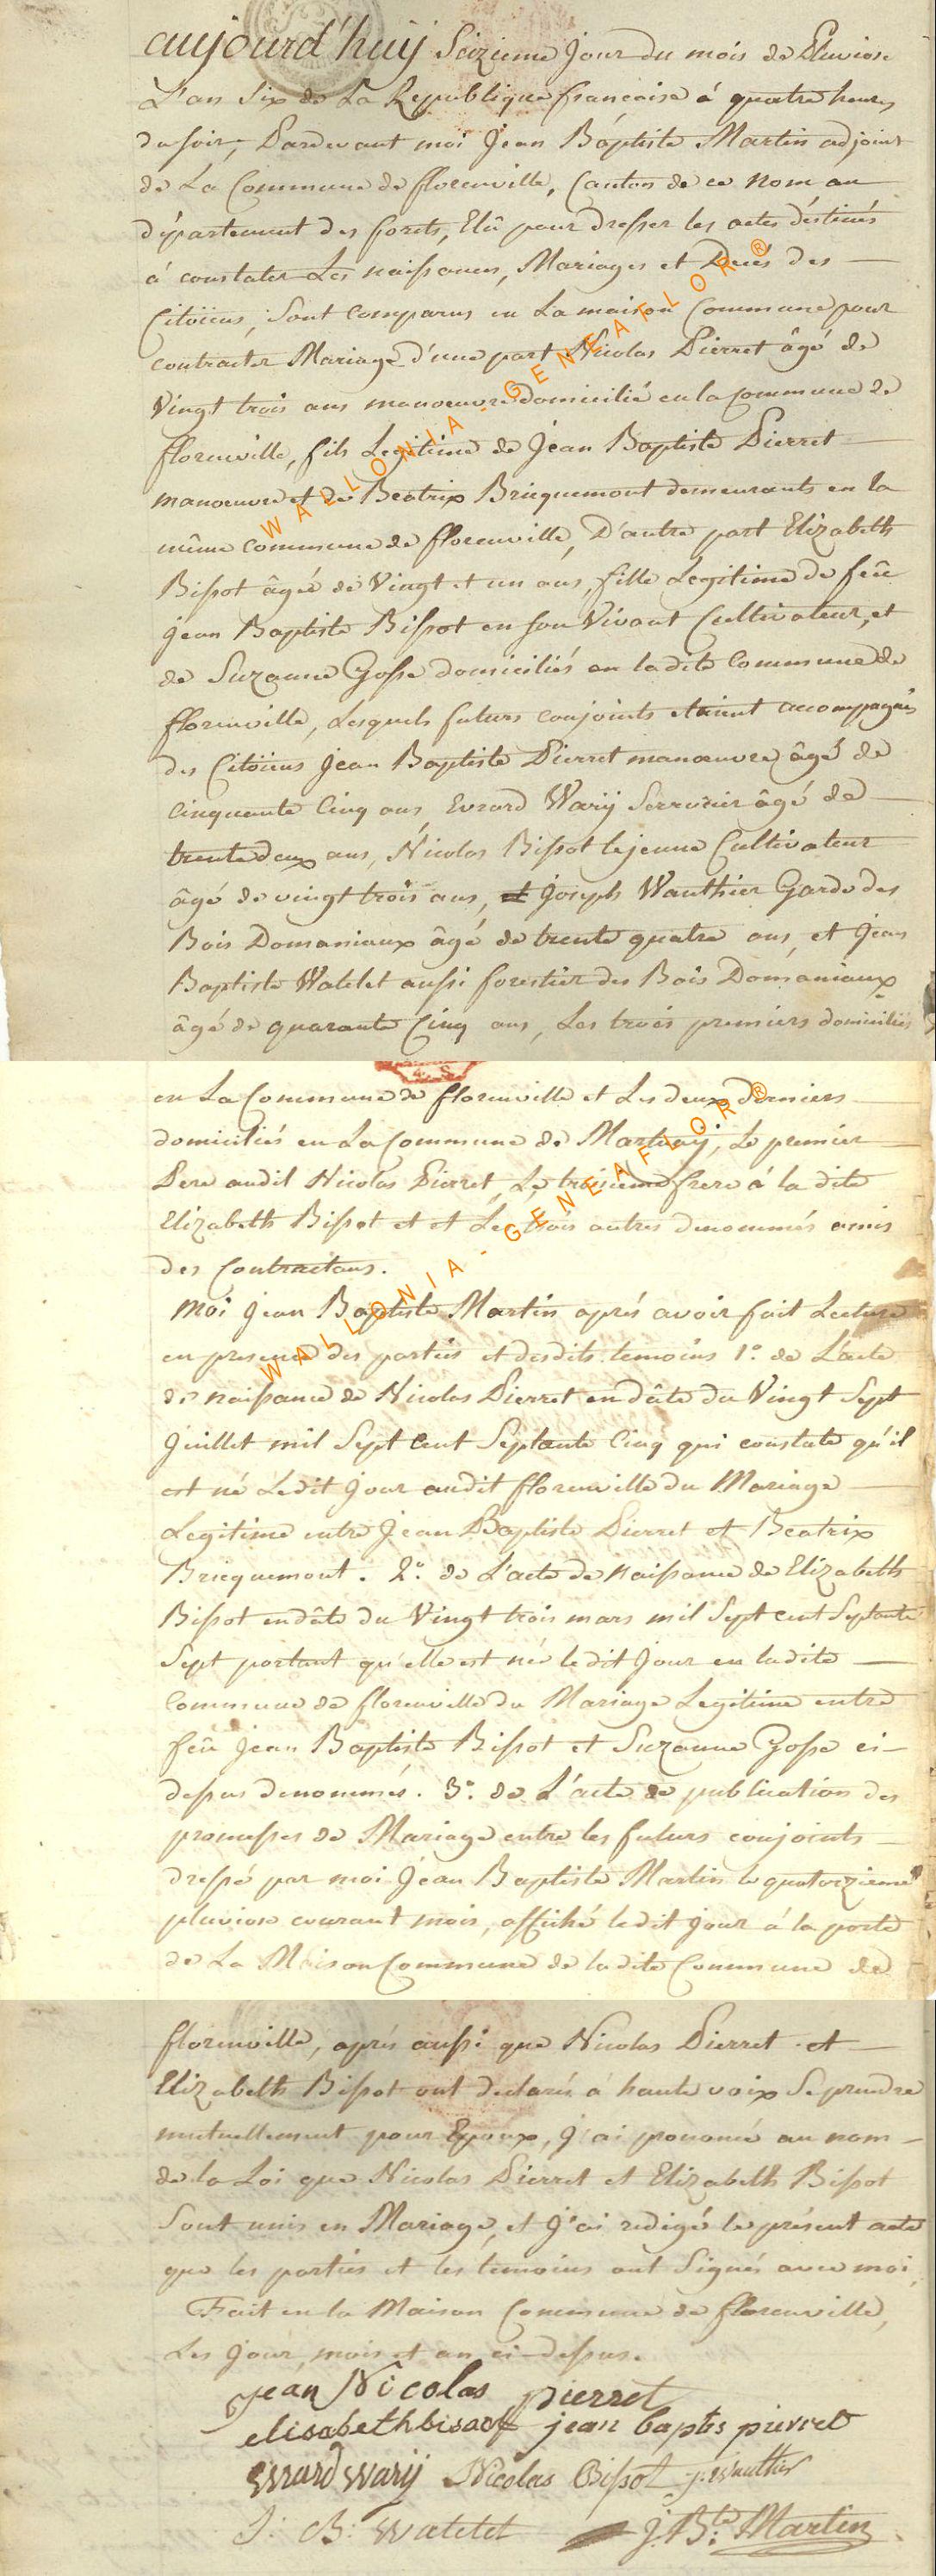 aujourd'huÿ Seizieme jour du mois de Pluviose
L'an Six de La Republique francaise à quatre heures
du soir, Pardevant moi Jean Baptiste Martin adjoint
de La Commune de florenville, Canton de ce Nom au
département des forets, Elû pour dresser les actes déstinés
à constater Les naissances, Mariages et Décés des
Citoïens, Sont comparus en La maison Commune pour
contracter Mariage d'une part Nicolas Pierret âgé de
Vingt trois ans manoeuvre domicilié en la commune de
florenville, fils Legitime de Jean Baptiste Pierret
manoeuvre et de Beatrix Bricquemont demeurants en la
même commune de florenville, D'autre part Elizabeth
Bissot âgée de Vingt et un ans, fille Legitime de feû
Jean Baptiste Bissot en son Vivant Cultivateur, et
de Suzanne Gosse domiciliés en ladite Commune de
florenville, Lesquels futurs conjoints etoient accompagnés
des Citoïens Jean Baptiste Pierret manoeuvre âgé de
Cinquante Cinq ans, Evrard Warÿ Serrurier âgé de
trente deux ans, Nicolas Bissot le jeune Cultivateur
âgé de vingt trois ans, et Joseph Wauthier Garde des
Bois Domaniaux âgé de trente quatre ans, et Jean
Baptiste Watelet aussi forestier des Bois Domaniaux
âgé de quarante Cinq ans, Les trois premiers domiciliés
en La Commune de florenville et Les deux derniers
domiciliés en La Commune de, Le premier
Pere audit Nicolas Pierret, Le troisieme frere à la dite
Elizabeth Bissot et et Les trois autres denommés amis
des Contractans.
Moi Jean Baptiste Martin aprés avoir fait Lecture
en presence des parties et desdits temoins 1.° de L'acte
de naissance de Nicolas Pierret en dâte du Vingt Sept
Juillet mil Sept Cent Septante Cinq qui constate qu'il
est né Ledit jour audit florenville du Mariage
Legitime entre Jean Baptiste Pierret et Beatrix
Bricquemont. 2.° de L'acte de naissance de Elizabeth
Bissot en dâte du Vingt trois mars mil Sept cent Septante
Sept portant qu'elle est née ledit jour en ladite
Commune de florenville du Mariage Legitime entre
feû Jean Baptiste Bissot et Suzanne Gosse ci-
dessus denommés. 3.° de L'acte de publication des
promesses de Mariage entre les futurs conjoints
dressé par moi Jean Baptiste Martin le quatorzieme
pluviose courant mois, affiché ledit jour à la porte
de La Maison Commune de ladite Commune de
florenville, aprés aussi que Nicolas Pierret et
Elizabeth Bissot ont declarés à haute voix Se prendre
mutuellement pour Epoux, j'ai prononcé au nom
de la Loi que Nicolas Pierret et Elizabeth Bissot
Sont unis en Mariage, et j'ai redigé le présent acte
que les parties et les temoins ont Signés avec moi,
Fait en la Maison Commune de florenville,
Les jour, mois et an ci-dessus.
Jean Nicolas pierret
elisabeth bisaot jean baptis pierret
Evrard warÿ Nicolas Bissot J: Wauthier
J: B: Watelet J. B.te Martin
WALLONIA - GENEAFLOR®
WALLONIA - GENEAFLOR®